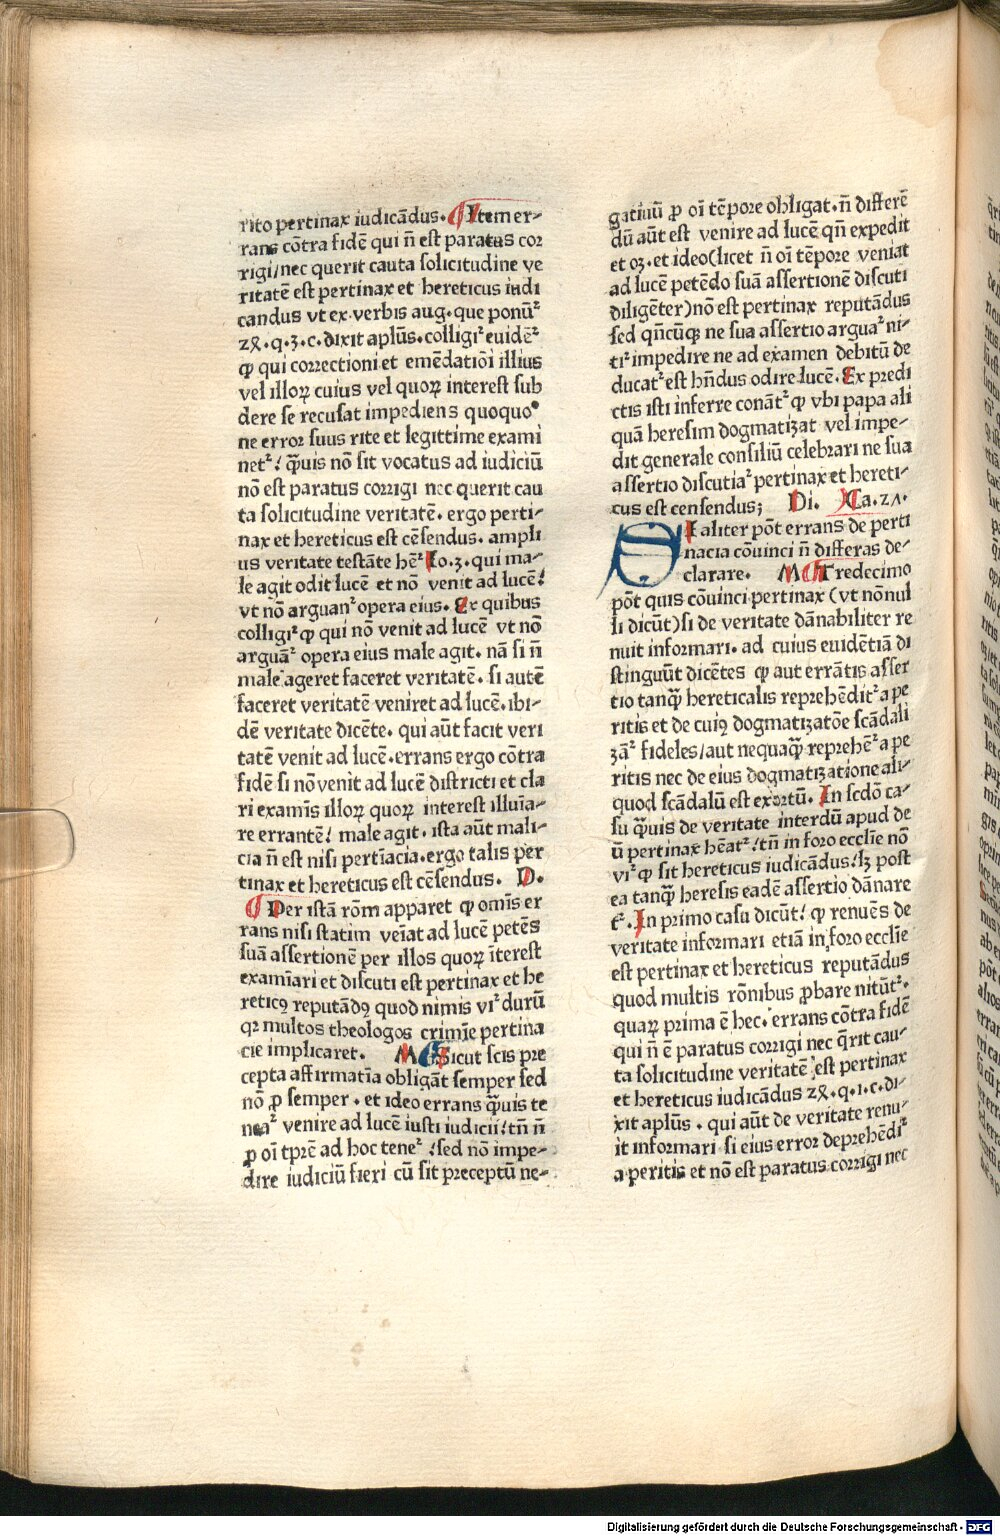 rito pertinax iudicãdus. Item er-
rans cõtra fidẽ qui n̄ est paratus cor
rigi/nec querit cauta solicitudine ve
ritatẽ est pertinax et hereticus iudi
candus vt ex verbis aug. que ponũꝛ
24. q. 3. c. dixit aplũs. colligiꝛ euidẽꝛ
ꝙ qui correctioni et emẽdatiõi illius
vel illoꝝ cuius vel quoꝝ interest sub
dere se recusat impediens quoquo
ne error suus rite et legittime exami
netꝛ! q̃uis nõ sit vocatus ad iudiciũ
nõ est paratus corrigi nec querit cau
ta solicitudine veritatẽ. ergo perti-
nax et hereticus est cẽsendus. ampli
us veritate testãte hẽꝛ Io. 3. qui ma-
le agit odit lucẽ et nõ venit ad lucẽ!
vt nõ arguanꝛ opera eius. Ex quibus
colligiꝛ ꝙ qui nõ venit ad lucẽ vt nõ
arguãꝛ opera eius male agit. nã si n̄
male ageret faceret veritatẽ. si autẽ
faceret veritatẽ veniret ad lucẽ. ibi-
dẽ veritate dicẽte. qui aũt facit veri
tatẽ venit ad lucẽ. errans ergo cõtra
fidẽ si nõ venit ad lucẽ districti et cla
ri examĩs illoꝝ quoꝝ interest illuĩa-
re errantẽ! male agit. ista aũt mali-
cia n̄ est nisi pertĩacia. ergo talis per
tinax et hereticus est cẽsendus. D.
Per istã rõm apparet ꝙ omĩs er
rans nisi statim veĩat ad lucẽ petẽs
suã assertionẽ per illos quoꝝ ĩterest
examĩari et discuti est pertinax et he
reticꝰ reputãdꝰ quod nimis viꝛ durũ
qꝛ multos theologos crimĩe pertina
cie implicaret. M Sicut scis pre
cepta affirmatĩa obligãt semper sed
nõ ꝓ semper. et ideo errans q̃uis te
neaꝛ venire ad lucẽ iusti iudicii! tñ n̄
ꝓ oĩ tp̃re ad hoc teneꝛ! sed nõ impe-
dire iudiciũ fieri cũ sit preceptũ ne-
gatiuũ ꝓ oĩ tẽpore obligat. n̄ differẽ
dũ aũt est venire ad lucẽ qñ expedit
et oꝫ. et ideo (licet n̄ oĩ tẽpore veniat
ad lucẽ petẽdo suã assertionẽ discuti
diligẽter) nõ est pertinax reputãdus
sed qñcũqꝫ ne sua assertio arguaꝛ ni-
tiꝛ impedire ne ad examen debitũ de
ducatꝛ est hñdus odire lucẽ. Ex predi
ctis isti inferre conãtꝛ ꝙ vbi papa ali
quã heresim dogmatizat vel impe-
dit generale consiliũ celebrari ne sua
assertio discutiaꝛ pertinax et hereti-
cus est censendus; Di. Ca. 21.
Qualiter põt errans de perti
nacia cõuinci n̄ differas de-
clarare. M Tredecimo
põt quis cõuinci pertinax (vt nõnul
li dicũt) si de veritate dãnabiliter re
nuit informari. ad cuius euidẽtiã di
stinguũt dicẽtes ꝙ aut errãtis asser
tio tanq̃ hereticalis reprehẽditꝛ a pe
ritis et de cuiꝰ dogmatizatõe scãdali
zãꝛ fideles/aut nequaq̃ reprehẽꝛ a pe
ritis nec de eius dogmatizatione ali-
quod scãdalũ est exortũ. In scdõ ca-
su q̃uis de veritate interdũ apud de
ũ pertinax hẽatꝛ! tñ in foro ecclĩe nõ
viꝛ ꝙ sit hereticus iudicãdus! lꝫ post
ea tanq̃ heresis eadẽ assertio dãnare
tꝛ. In primo casu dicũt! ꝙ renuẽs de
veritate informari etiã in foro ecclĩe
est pertinax et hereticus reputãdus
quod multis rõnibus ꝓbare nitũtꝛ.
quaꝝ prima ẽ hec. errans cõtra fidẽ
qui n̄ ẽ paratus corrigi nec q̃rit cau-
ta solicitudine veritatẽ! est pertinax
et hereticus iudicãdus 24. q. 1. c. di-
xit aplũs. qui aũt de veritate renu-
it informari si eius error deprehẽdiꝛ
a peritis et nõ est paratus corrigi nec
Digitalisierung gefördert durch die Deutsche Forschungsgemeinschaft - DFG